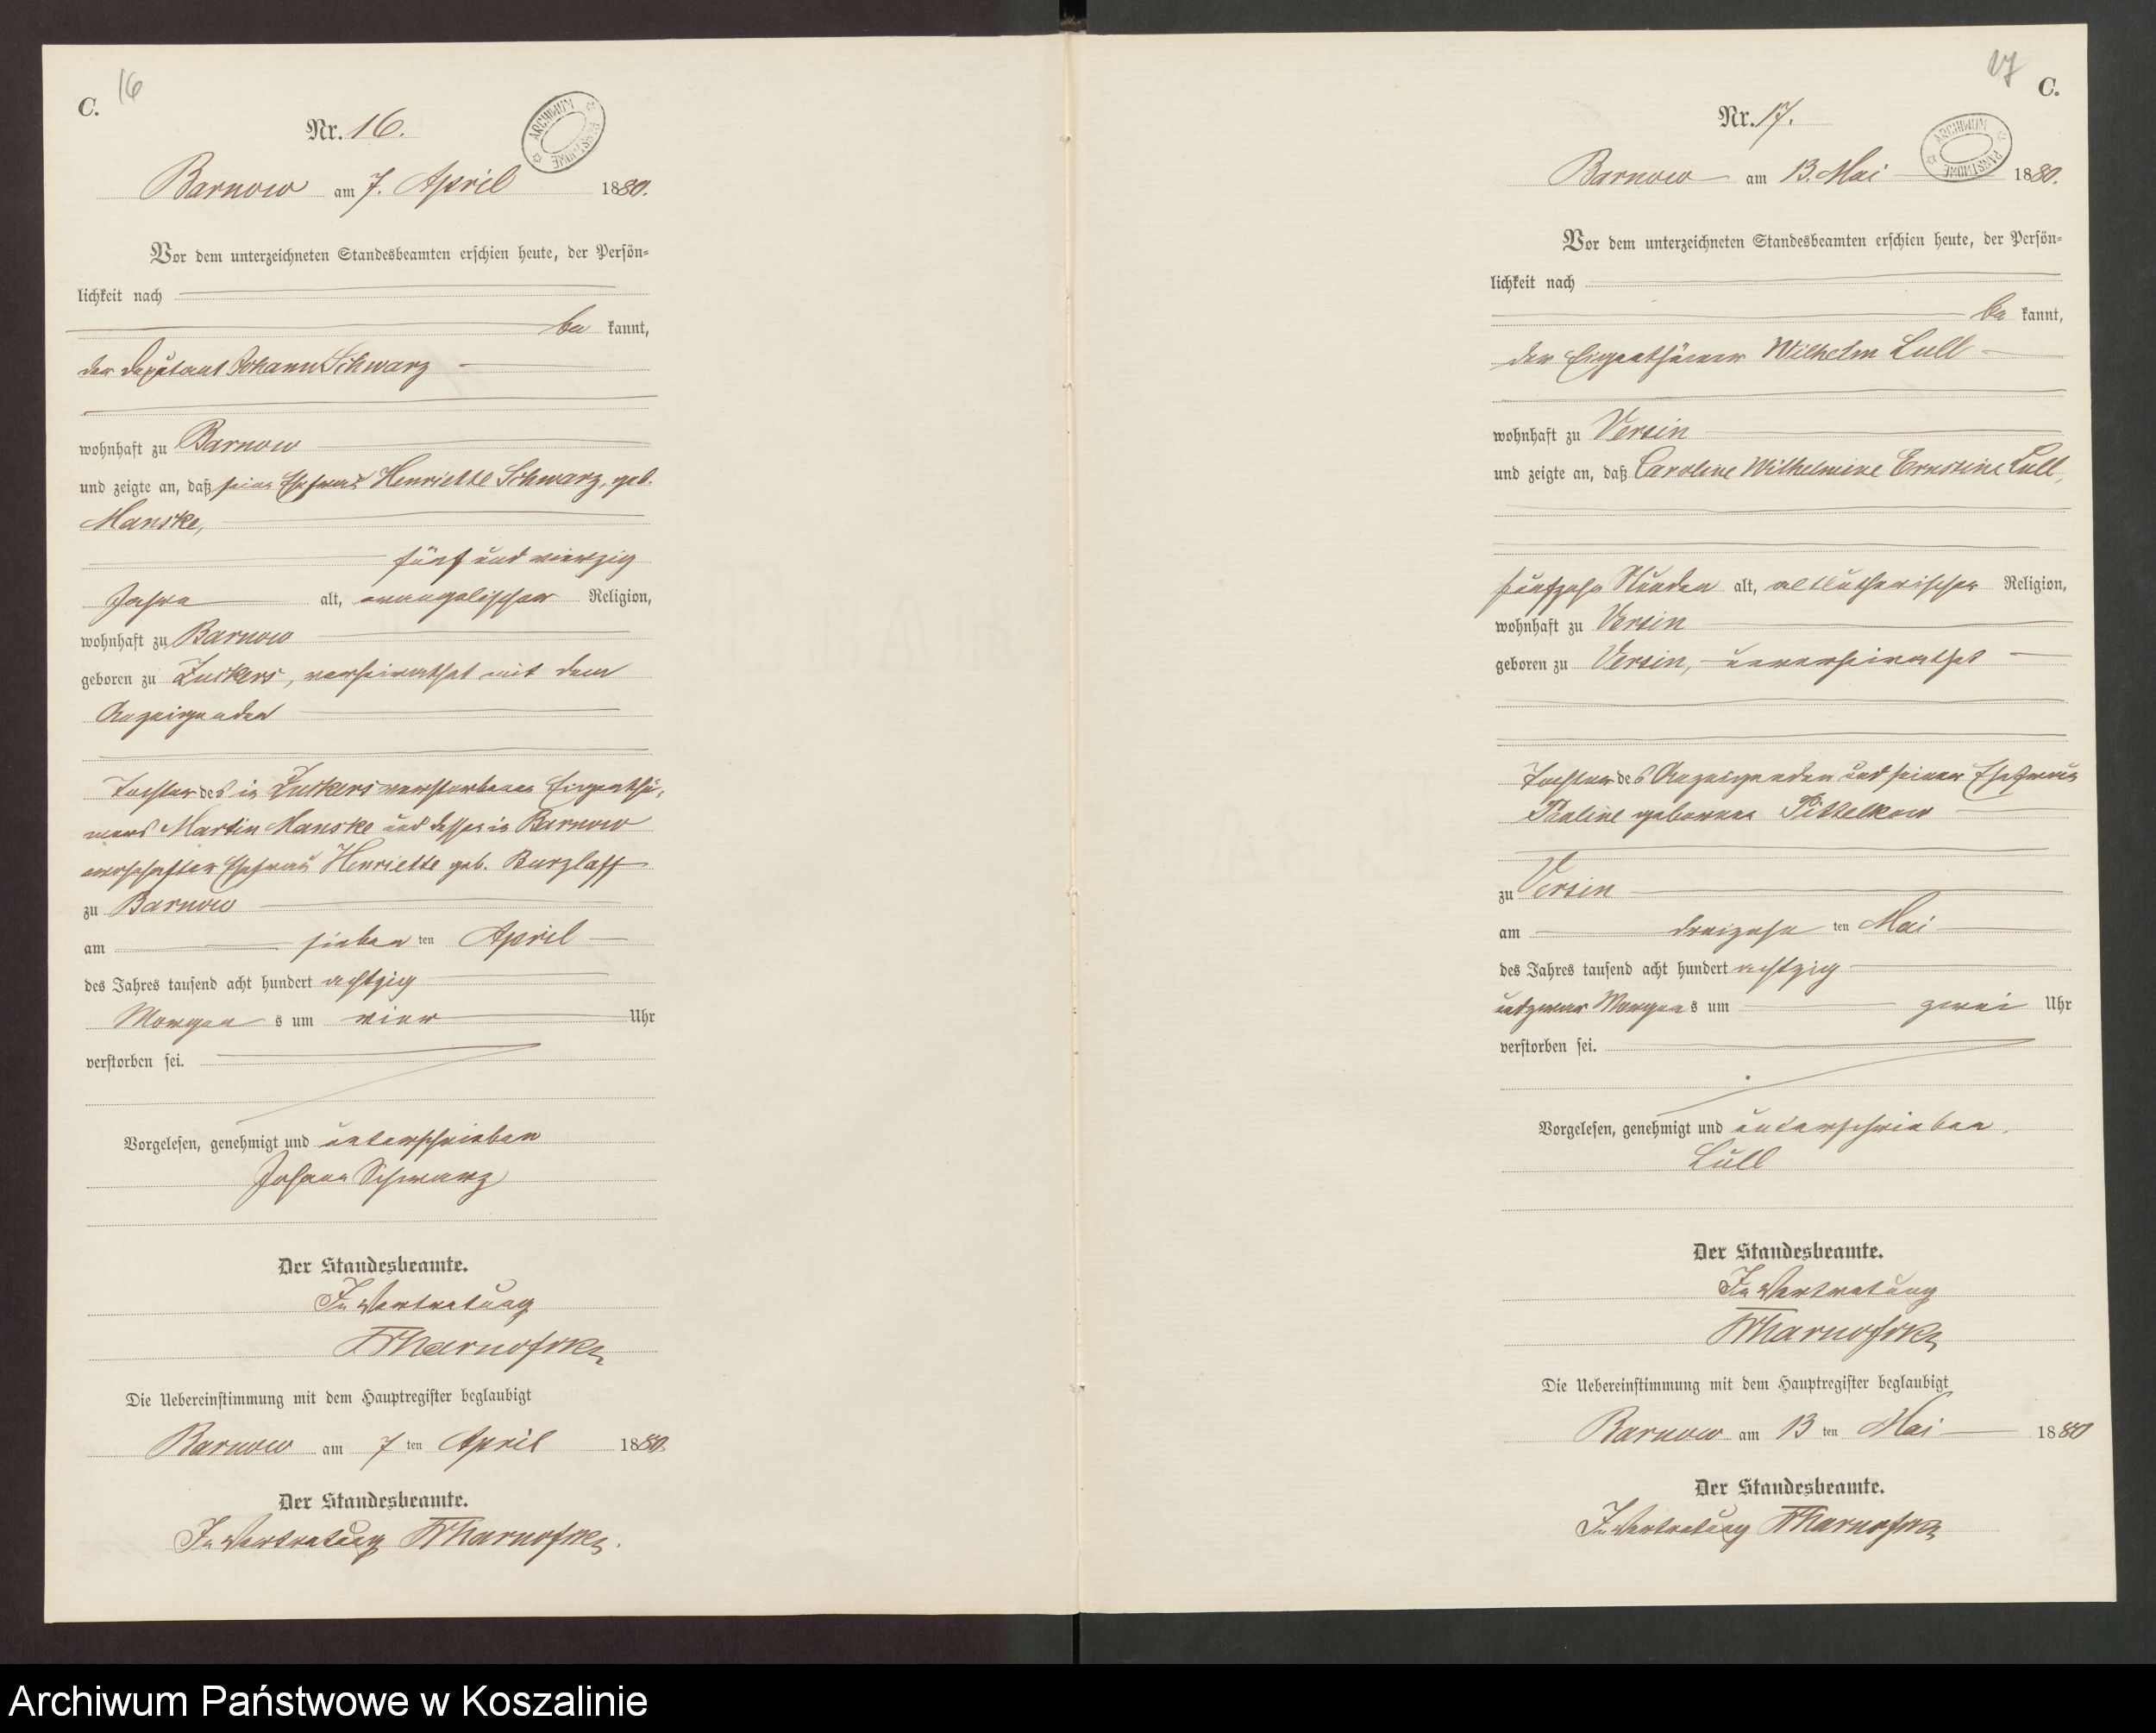 C. 16
ARCHIWUM PAŃSTWOWE
Nr. 16.
Barnow am 7. April 1880.
Vor dem unterzeichneten Standesbeamten erschien heute, der Persön-
lichkeit nach
be kannt,
der Deputant Johann Schwarz
wohnhaft zu Barnow
und zeigte an, daß seine Ehefrau Henriette Schwarz, geb.
Manske,
fünf und vierzig
Jahre alt, evangelischer Religion,
wohnhaft zu Barnow
geboren zu Zuckers, verheirathet mit dem
Anzeigenden
Tochter des in Zuckers verstorbenen Eigenthü-
mers Martin Manske und dessen in Barnow
Ehefrau Henriette geb. Burzlaff
zu Barnow
am sieben ten April
des Jahres tausend acht hundert achtzig
Morgen s um vier Uhr
verstorben sei.
Vorgelesen, genehmigt und unterschrieben
Johann Schwarz
Der Standesbeamte.
In Vertretung
Die Uebereinstimmung mit dem Hauptregister beglaubigt
Barnow am 7 ten April 1880.
Der Standesbeamte.
In Vertretung
17 C.
ARCHIWUM PAŃSTWOWE
Nr. 17.
Barnow am 13. Mai 1880.
Vor dem unterzeichneten Standesbeamten erschien heute, der Persön-
lichkeit nach
be kannt,
der Eigenthümer Wilhelm Lull
wohnhaft zu Versin
und zeigte an, daß Caroline Wilhelmine Ernstine Lull,
fünfzehn Stunden alt, altlutherischer Religion,
wohnhaft zu Versin
geboren zu Versin, unverheirathet
Tochter des Anzeigenden und seiner Ehefrau
Pauline geborenen Pittelkow
zu Versin
am dreizehn ten Mai
des Jahres tausend acht hundert achtzig
und zwar Morgens um zwei Uhr
verstorben sei.
Vorgelesen, genehmigt und unterschrieben.
Lull
Der Standesbeamte.
In Vertretung
Die Uebereinstimmung mit dem Hauptregister beglaubigt
Barnow am 13 ten Mai 1880
Der Standesbeamte.
In Vertretung
Archiwum Państwowe w Koszalinie